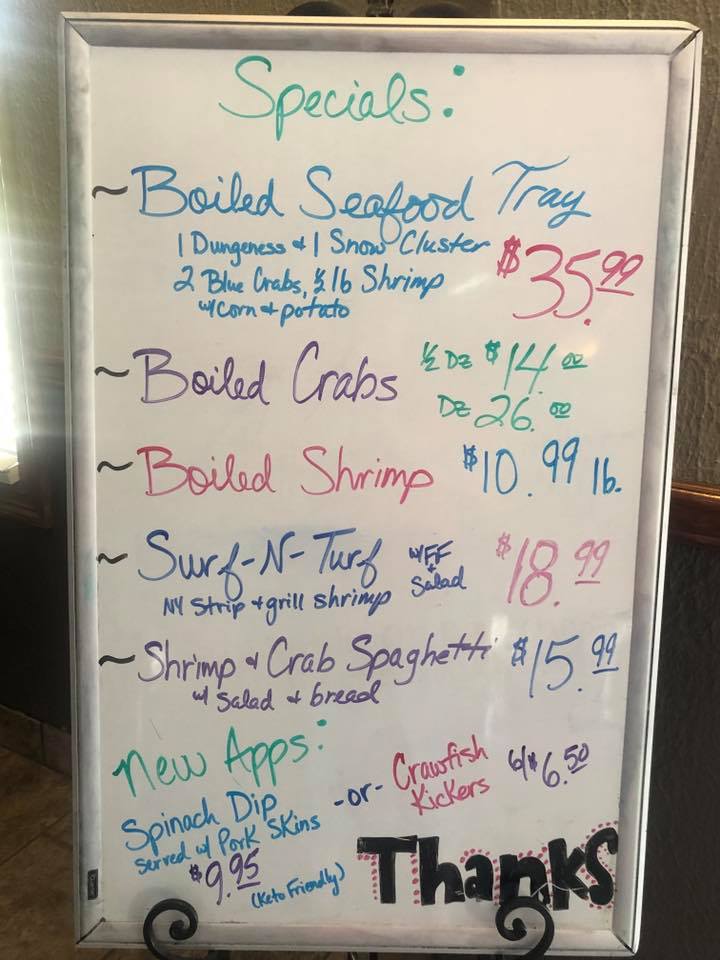 Specials:
~ Boiled Seafood Tray
1 Dungeness & 1 Snow Cluster
2 Blue Crabs, ½ lb Shrimp
w/ corn & potato
$35.99
~ Boiled Crabs ½ Dz $14.00
Dz 26.00
~ Boiled Shrimp $10.99 lb.
~ Surf-N-Turf w/ FF & Salad $18.99
NY Strip & grill shrimp
~ Shrimp & Crab Spaghetti $15.99
w/ Salad & bread
New Apps:
Spinach Dip
served w/ Pork Skins
$9.95
(Keto Friendly)
-or- Crawfish Kickers 6/$6.50
Thanks